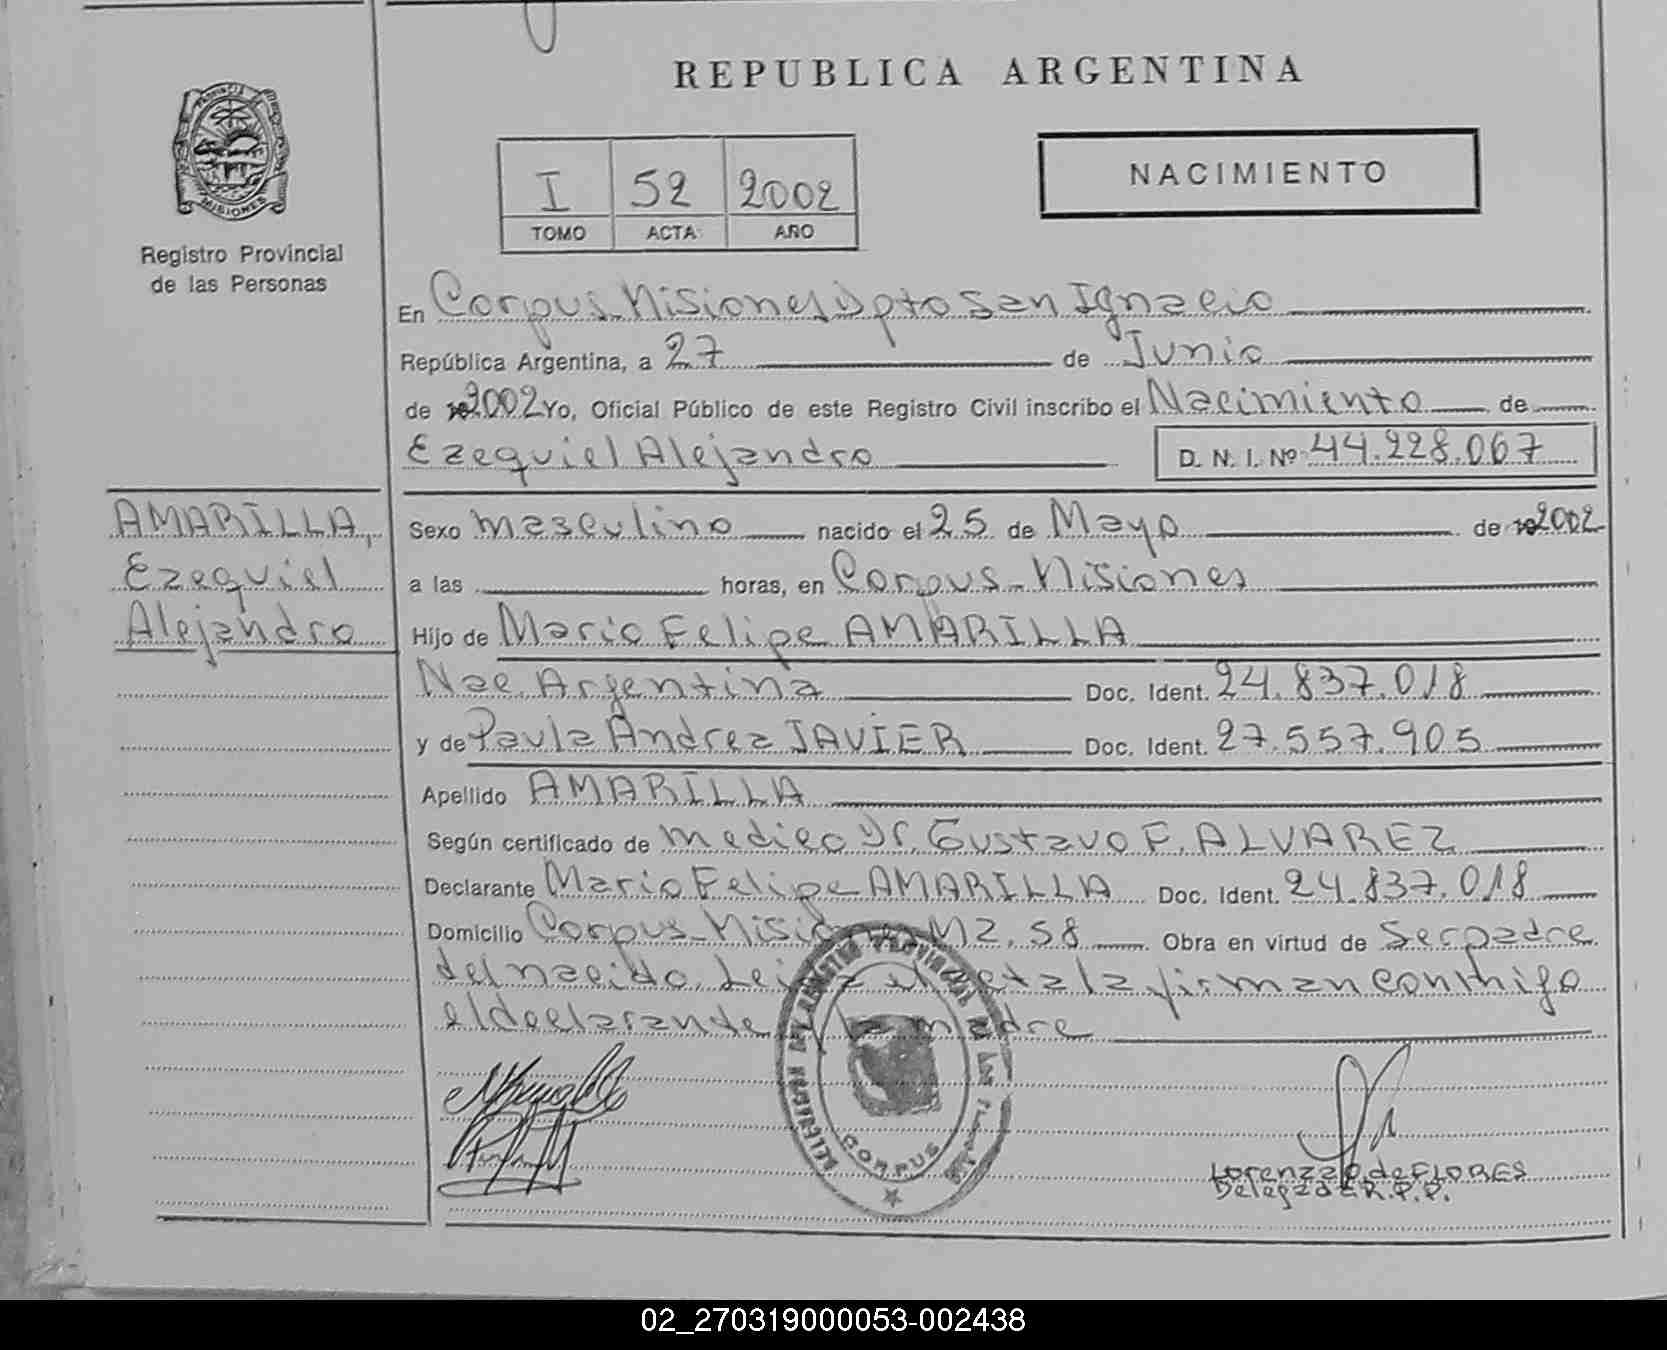 REPUBLICA ARGENTINA
PROVINCIA DE
MISIONES
Registro Provincial
de las Personas
I 52 2002
TOMO ACTA AÑO
NACIMIENTO
En Corpus Misiones Dpto San Ignacio
República Argentina, a 27 de Junio
de 2002 Yo, Oficial Público de este Registro Civil inscribo el Nacimiento de
Ezequiel Alejandro D. N. I. Nº 44.228.067
AMARILLA,
Ezequiel
Alejandro
Sexo masculino nacido el 25 de Mayo de 2002
a las horas, en Corpus - Misiones
Hijo de Mario Felipe AMARILLA
Nac. Argentina Doc. Ident. 24.837.018
y de Paula Andrea JAVIER Doc. Ident. 27.557.905
Apellido AMARILLA
Según certificado de medico Dr. Gustavo F. ALVAREZ
Declarante Mario Felipe AMARILLA Doc. Ident. 24.837.018
Domicilio Corpus - Misiones MZ. 58 Obra en virtud de Ser padre
del nacido. Leida el acta la firman conmigo
el declarante y la madre
CORPUS
Lorenza de FLORES
Delegada R.P.P.
02_270319000053-002438